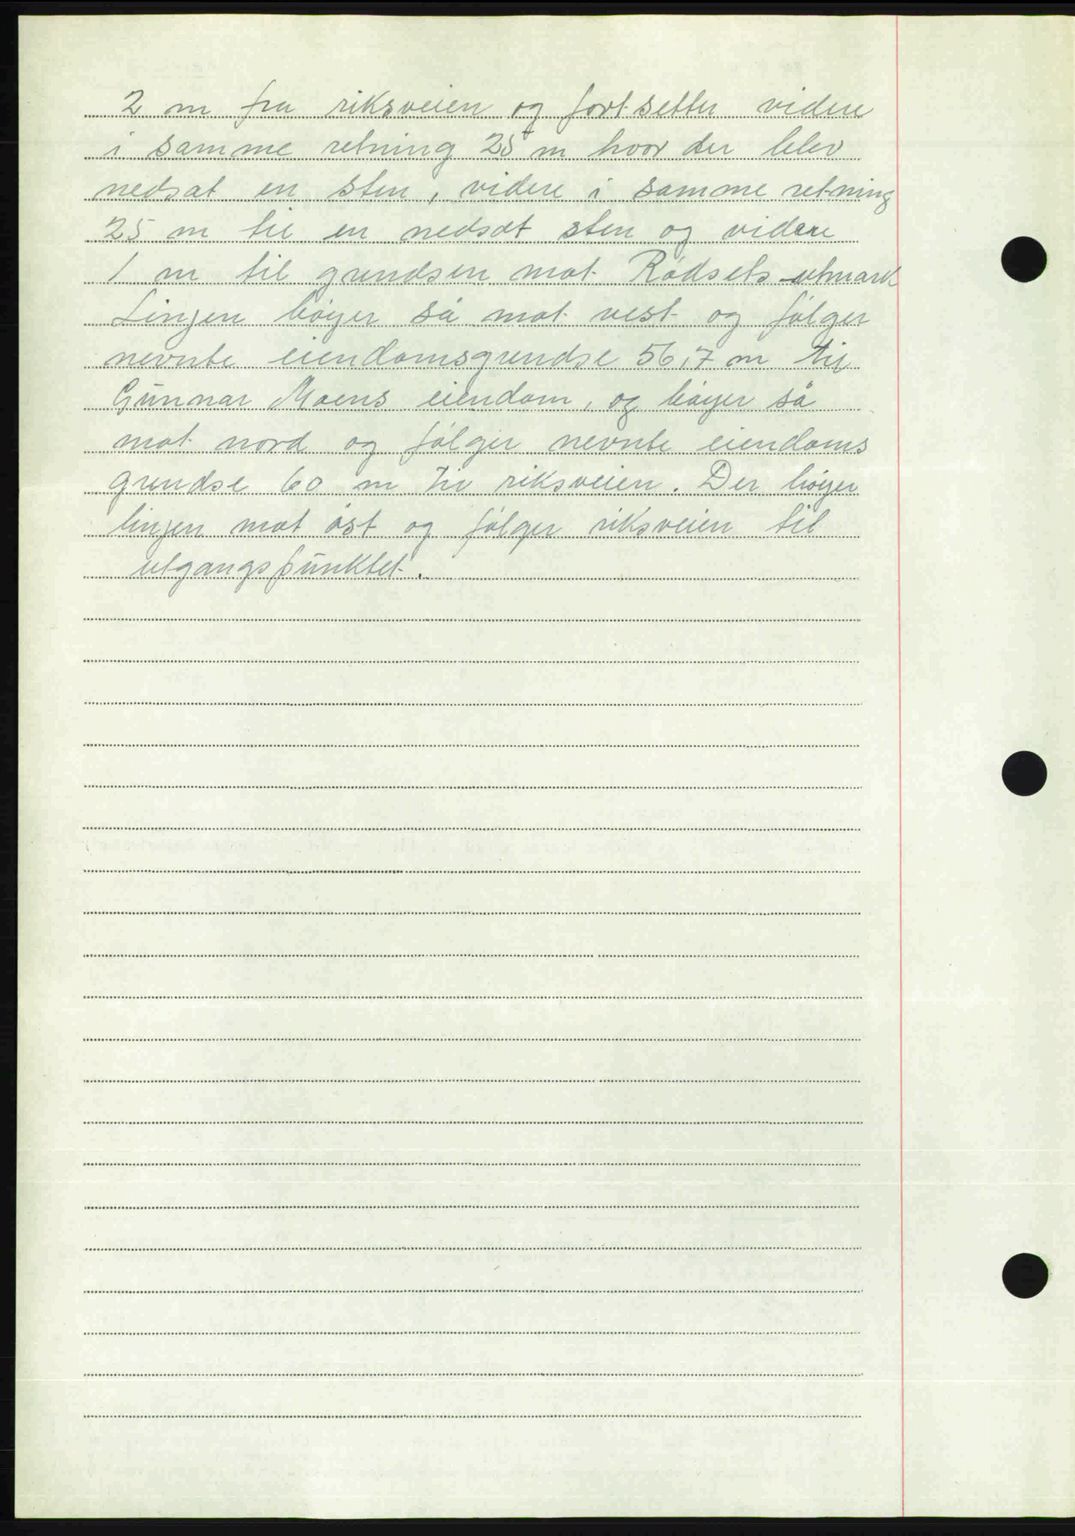 2 m fra riksveien og fortsetter videre
i samme retning 25 m hvor der blev
nedsat en sten, videre i samme retning
25 m til en nedsat sten og videre
1 m til grendsen mot Rødsets utmark
Linjen bøyer så mot vest og følger
nevnte eiendomsgrendse 56,7 m til
Gunnar Moens eiendom, og bøyer så
mot nord og følger nevnte eiendoms
grendse 60 m til riksveien. Der bøyer
linjen mot øst og følger riksveien til
utgangspunktet.